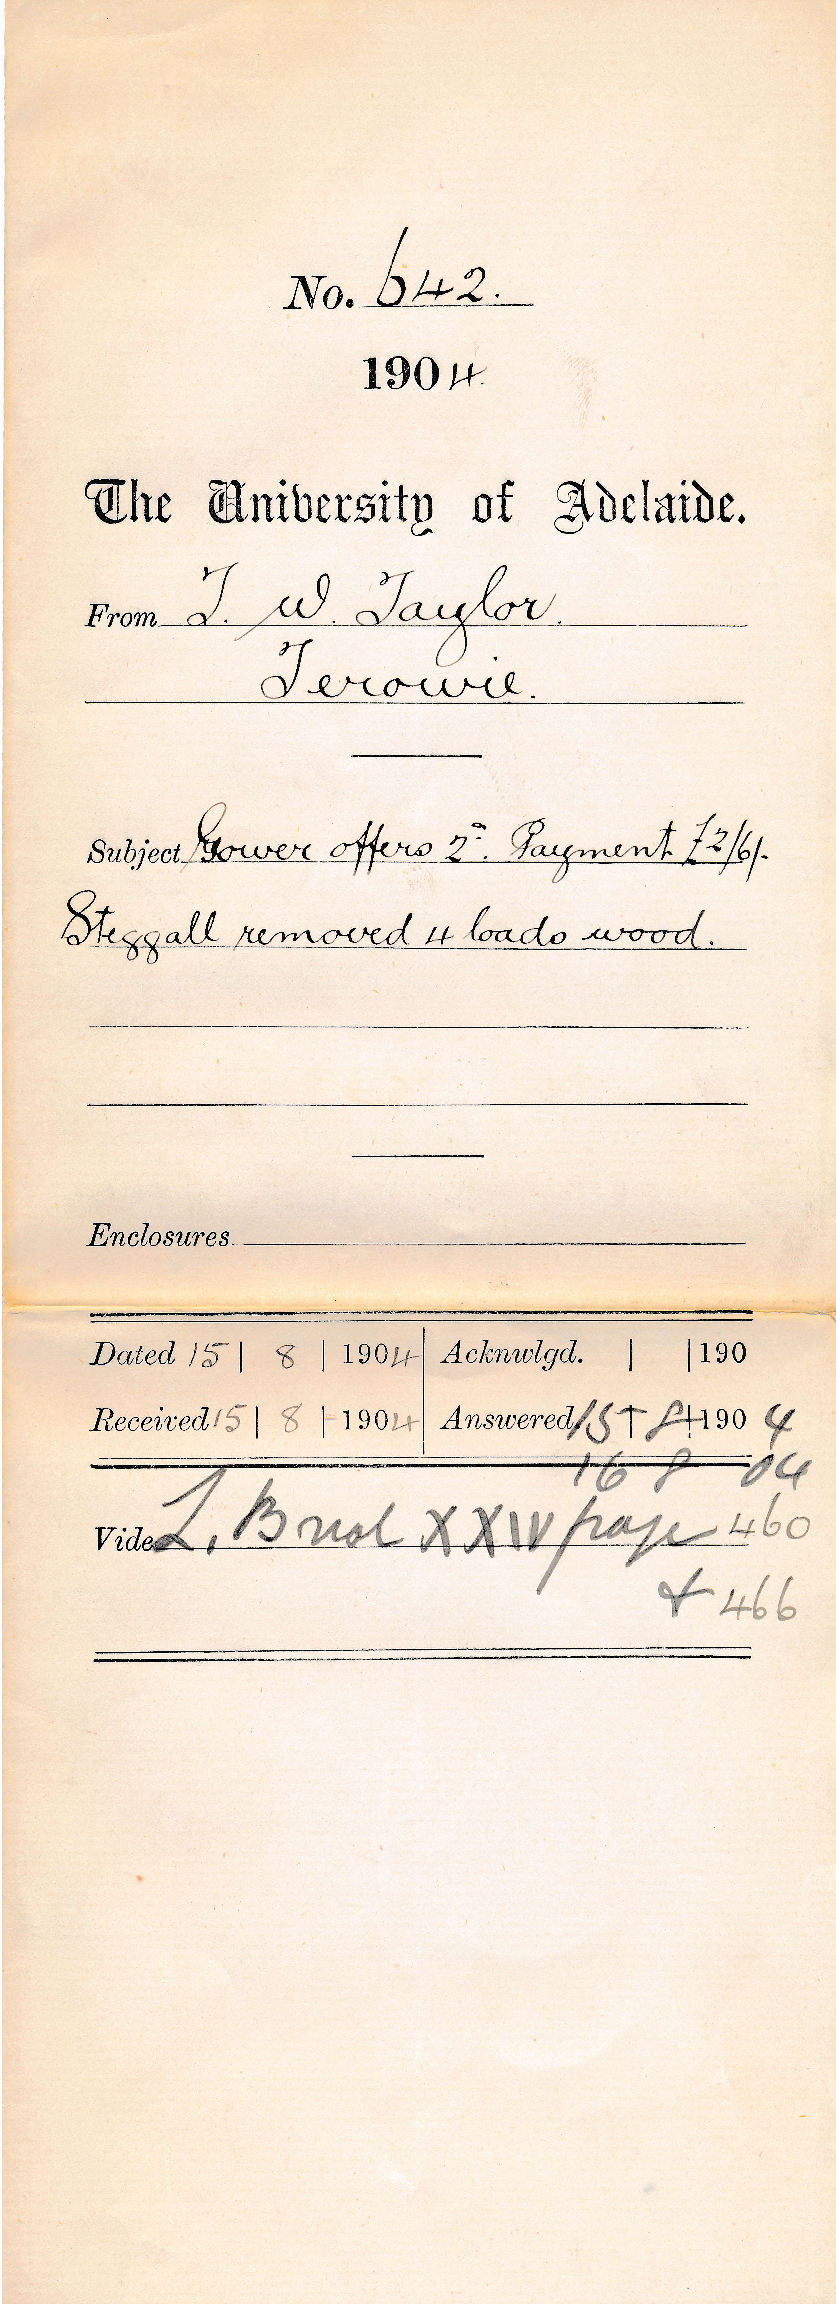 No. 642.
1904
The University of Adelaide.
From T. W. Taylor.
Terowie.
Subject Gower offers 2ⁿᵈ. Payment £2/6/-
Steggall removed 4 loads wood.
Enclosures.
Dated 15 | 8 | 1904 Acknwlgd. | | 190
Received 15 | 8 | 1904 Answered 15 | 8 | 1904
16 8 04
Vide L. B XXIV page 460
& 466